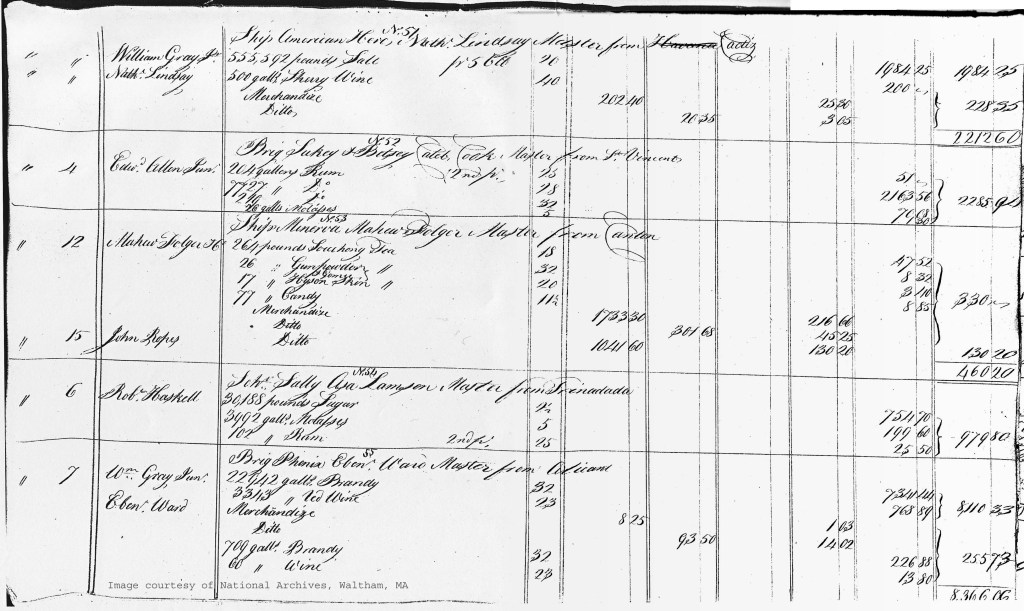 No. 51
Ship American Hero, Nathl. Lindsay Master from Havana Cadiz
" " William Gray Jr. 555,592 pounds Salt pr 56 lb 20 1984 25 1984 25
" " Nathl. Lindsay 500 galls. Sherry Wine 40 200 "
Merchandize 202 40 25 30 228 35
Ditto 20 35 3 05
2212 60
No. 52
Brig Sukey & Betsey Caleb Cook Master from St. Vincents
" 4 Edwd. Allen Jun. 204 gallons Rum 2nd pf. 25 51 "
7727 " Do. 28 2163 56
" Do. 32
26 galls Molasses 5
No. 53
Ship Minerva Mahew Folger Master from Canton
" 12 Mahew Folger 264 pounds Souchong Tea 18 47 52
26 " Gunpowder " 32 8 32
17 " Hyson Skin " 20 3 40
77 " Candy 11½ 8 85
330 "
Merchandize 1733 30 216 66
Ditto 301 68 45 25
" 15 John Ropes Ditto 1041 60 130 20 130 20
460 20
No. 54
Schr. Sally Asa Lamson Master from Grenada
" 6 Robt. Haskell 30,188 pounds Sugar 2½ 754 70
3992 galls. Molasses 5 199 60 979 80
102 " Rum 2nd pf. 25 25 50
55
Brig Phenix Ebenr. Ward Master from
" 7 Wm. Gray Jun. galls. Brandy 32 7341 44
3343 " Red Wine 23 768 89 8110 33
Eben. Ward Merchandize 8 25 1 03
Ditto 93 50 14 02
709 galls. Brandy 32 226 88 255 73
60 " Wine 23 13 80
8366 06
Image courtesy of National Archives, Waltham, MA